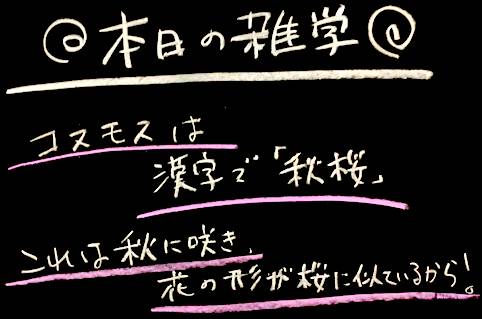 本日の雑学
コスモスは
漢字で「秋桜」
これは秋に咲き、
花の形が桜に似ているから!。